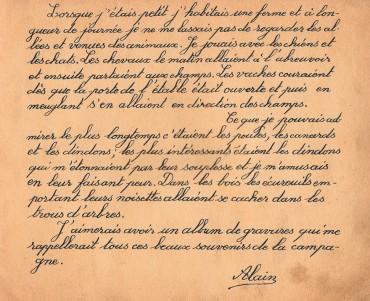 Lorsque j'étais petit j'habitais une ferme et à lon-
gueur de journée je ne me lassais pas de regarder les al-
lées et venues des animaux. Je jouais avec les chiens et
les chats. Les chevaux le matin allaient à l'abreuvoir
et ensuite partaient aux champs. Les vaches couraient
dès que la porte de l'étable était ouverte et puis en
meuglant s'en allaient en direction des champs.
Ce que je pouvais ad-
mirer le plus longtemps c'étaient les poules, les canards
et les dindons, les plus intéressants étaient les dindons
qui m'étonnaient par leur souplesse et je m'amusais
en leur faisant peur. Dans les bois les écureuils em-
portant leurs noisettes allaient se cacher dans les
trous d'arbres.
J'aimerais avoir un album de gravures qui me
rappellerait tous ces beaux souvenirs de la campa-
gne.
Alain